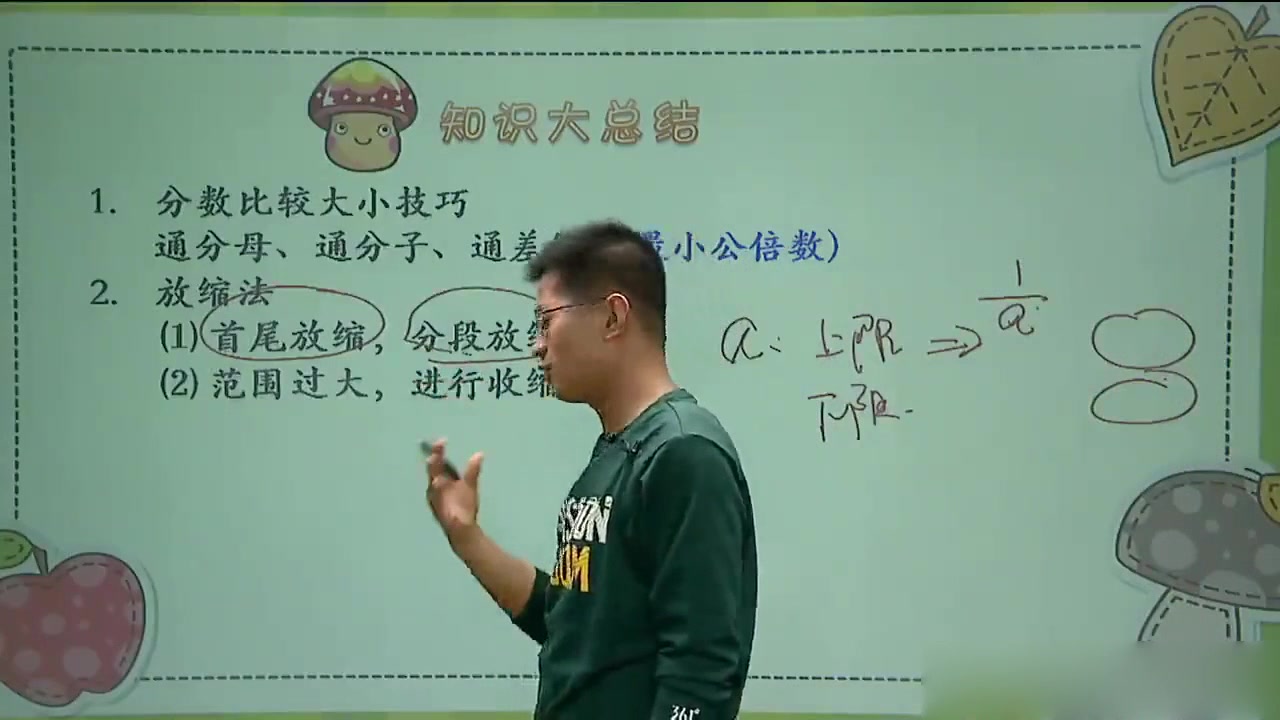 知识大总结
1. 分数比较大小技巧
通分母、通分子、通差 最小公倍数）
2. 放缩法
(1) 首尾放缩，分段放缩
(2) 范围过大，进行收缩
a: 上限 ⇒ 1/a
下限.
SION
OM
361°